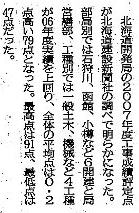 北海道開発局の2007年度工事成績評定点
が北海道建設新聞社の調べで明らかになった。
部局別では石狩川、函館、小樽など6開建と局
営繕部、工種別では一般土木、機械など4工種
が06年度実績を上回り、全体の平均点は0・2
点高い79点となった。最高点は91点、最低点は
47点だった。